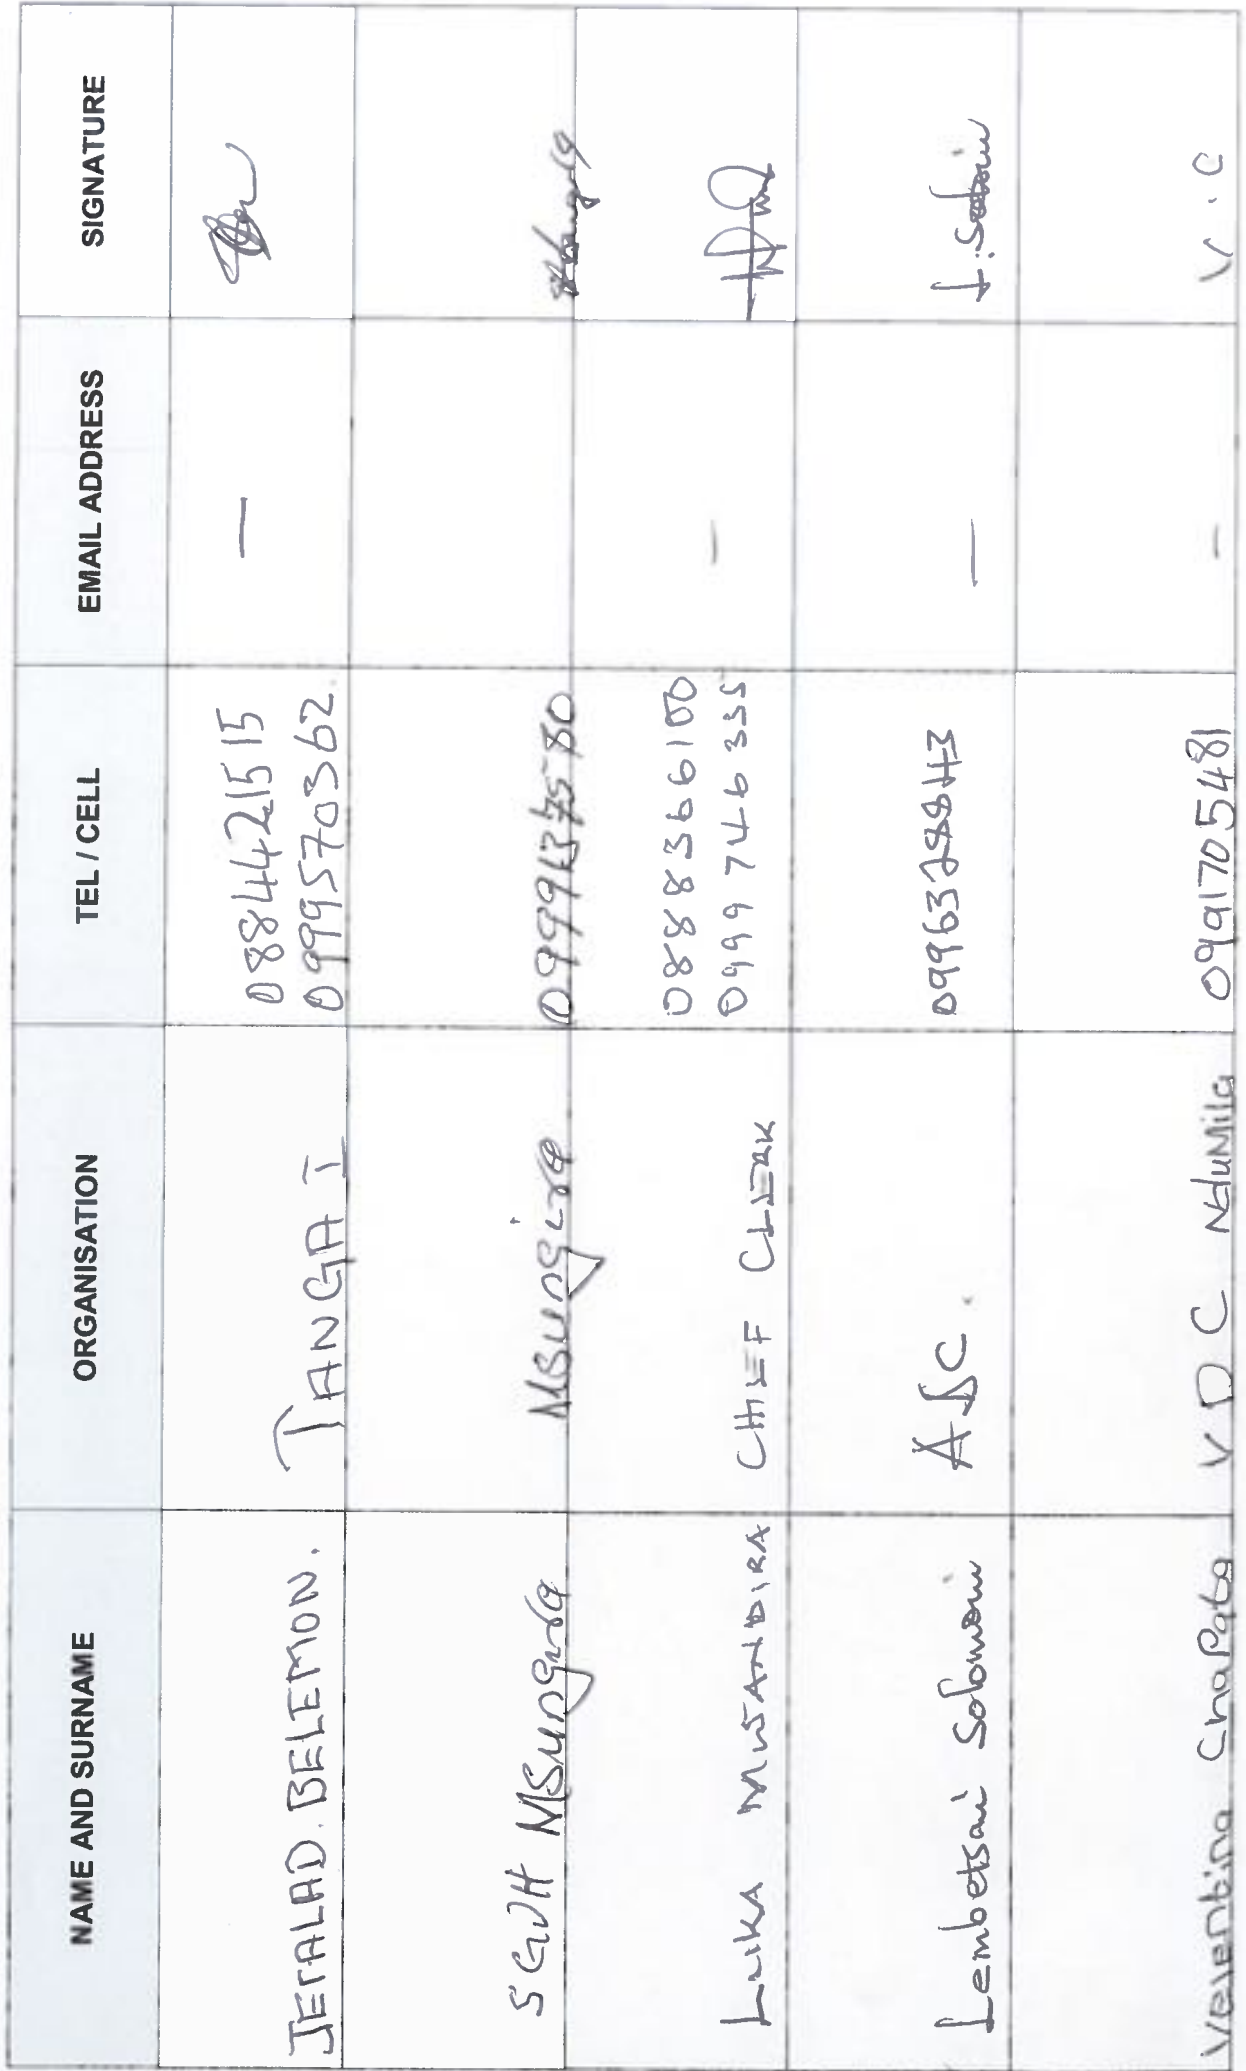 NAME AND SURNAME ORGANISATION TEL / CELL EMAIL ADDRESS SIGNATURE
JERALAD. BELEMON. TANGA I 0884421515 —
099570362
SGVH MSungira MSungira
LUKA MWANDIRA CHIEF CLERK 0888366100 -
0999746335
Lembetsani Solomoni ADC. 0996328843 — L. Solomoni
Velentino Chapata V D C NduMila 0991705481 - V.C